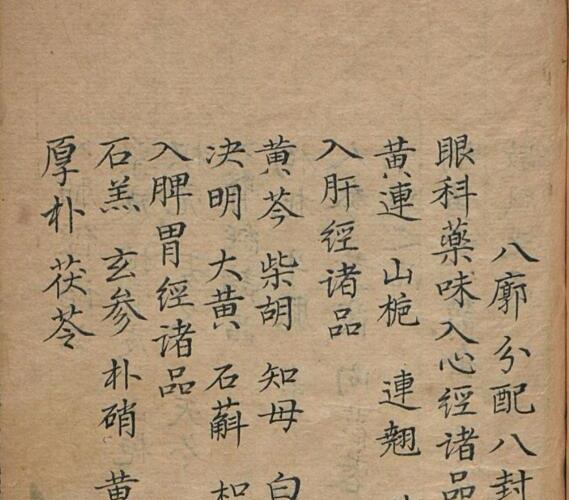 八廓分配八封
眼科藥味入心經诸品
黄連 山栀 連翘
入肝經诸品
黄芩 柴胡 知母 白
决明 大黄 石蔛
入脾胃經诸品
石羔 玄参 朴硝 黄
厚朴 茯苓